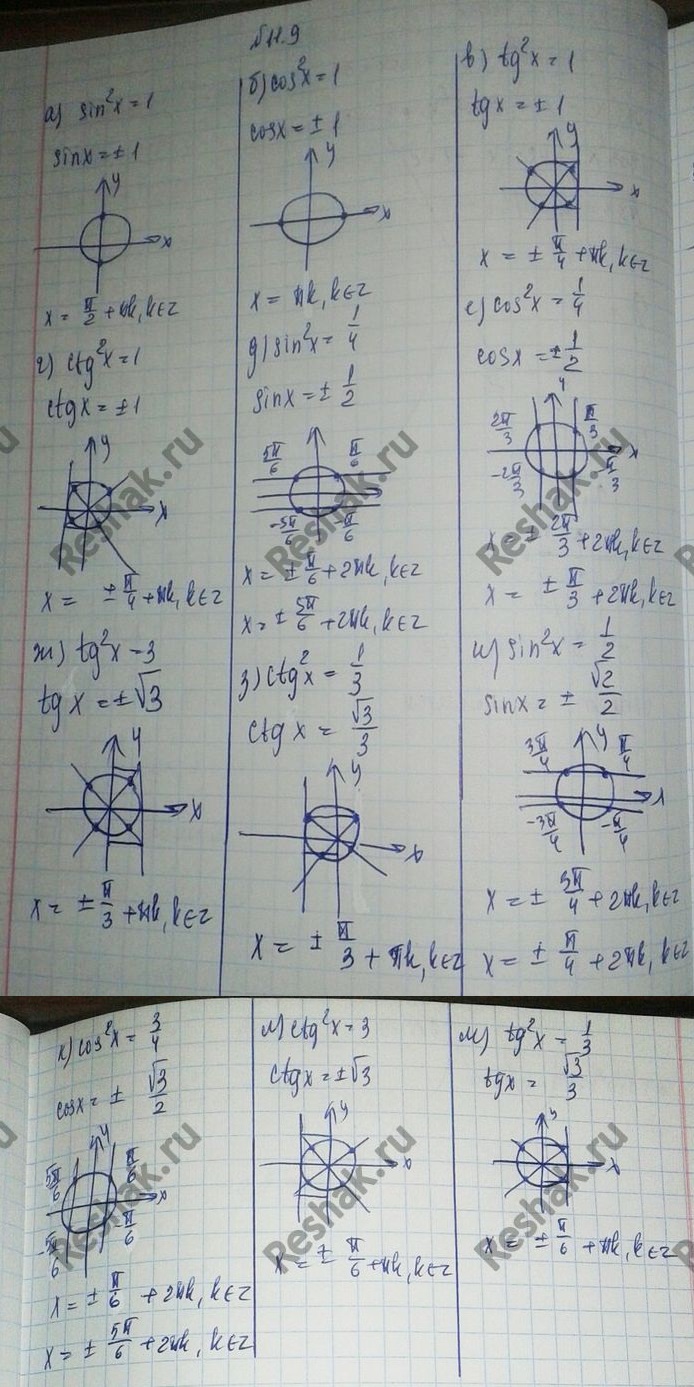 №11.9
а) sin²x = 1
sinx = ± 1
y
x
x = π/2 + πk, k∈z
б) cos²x = 1
cosx = ± 1
y
x
x = πk, k∈z
в) tg²x = 1
tgx = ± 1
y
x
x = ± π/4 + πk, k∈z
г) ctg²x = 1
ctgx = ±1
y
x
x = ± π/4 + πk, k∈z
д) sin²x = 1/4
sinx = ± 1/2
5π/6 π/6
-5π/6 -π/6
x = ± π/6 + 2πk, k∈z
x = ± 5π/6 + 2πk, k∈z
е) cos²x = 1/4
cosx = ± 1/2
y
2π/3 π/3
x
-2π/3 -π/3
x = ± 2π/3 + 2πk, k∈z
x = ± π/3 + 2πk, k∈z
ж) tg²x = 3
tgx = ±√3
y
x
x = ± π/3 + πk, k∈z
з) ctg²x = 1/3
ctgx = √3/3
y
x
x = ± π/3 + πk, k∈z
и) sin²x = 1/2
sinx = ± √2/2
3π/4 y π/4
x
-3π/4 -π/4
x = ± 3π/4 + 2πk, k∈z
x = ± π/4 + 2πk, k∈z
к) cos²x = 3/4
cosx = ± √3/2
y
5π/6 π/6
x
-5π/6 -π/6
x = ± π/6 + 2πk, k∈z
x = ± 5π/6 + 2πk, k∈z
л) ctg²x = 3
ctgx = ±√3
y
x
x = ± π/6 + πk, k∈z
м) tg²x = 1/3
tgx = √3/3
y
x
x = ± π/6 + πk, k∈z
Reshak.ru
Reshak.ru
Reshak.ru
Reshak.ru
Reshak.ru
Reshak.ru